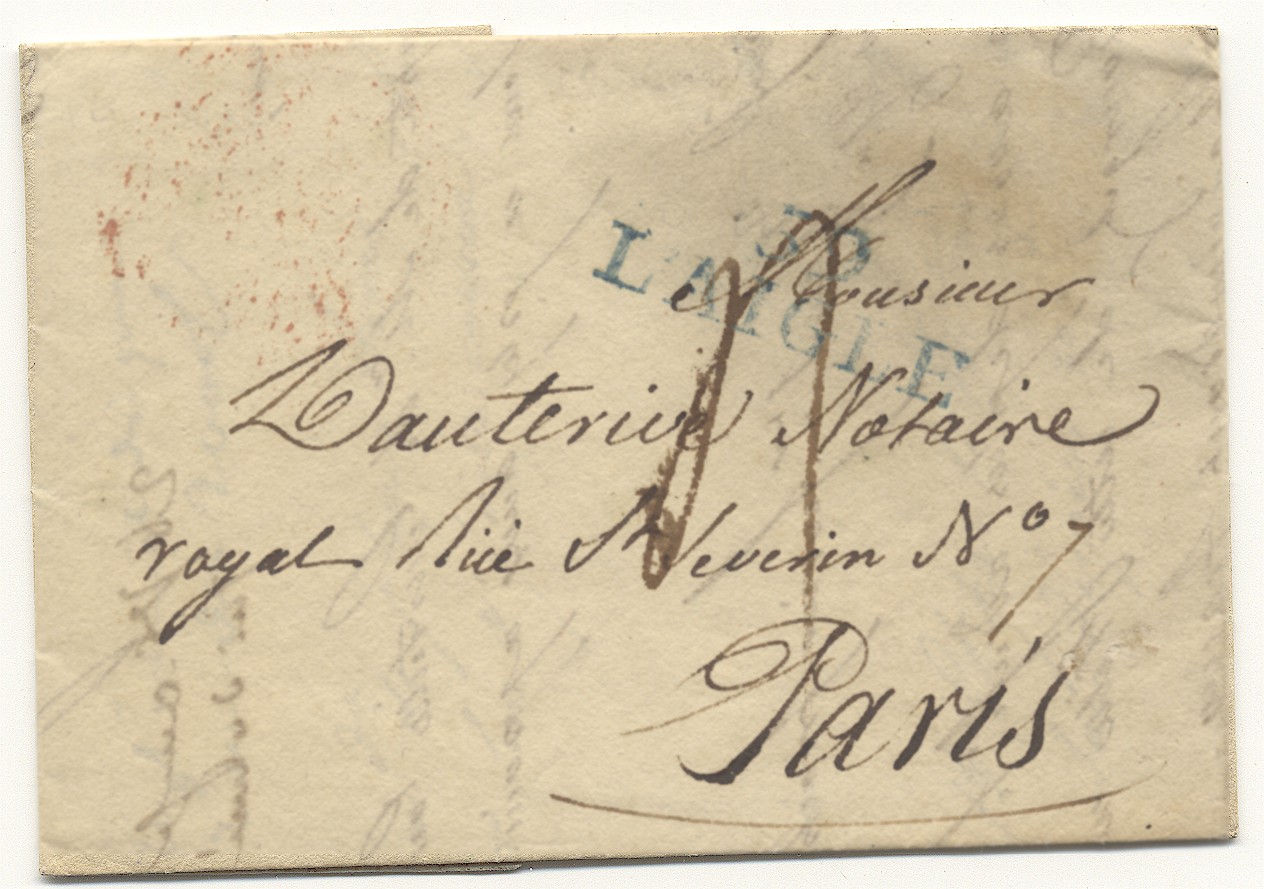 59
L'AIGLE
Monsieur
Dauterive Notaire
royal Rue St Severin Nº 7
Paris